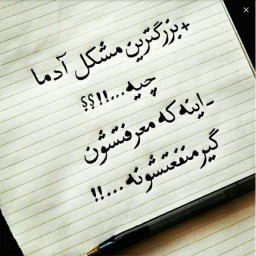 +بزرگترین مشکل آدما
چیه...!!؟؟
-اینه که معرفتشون
گیر منفعتشونه...!!